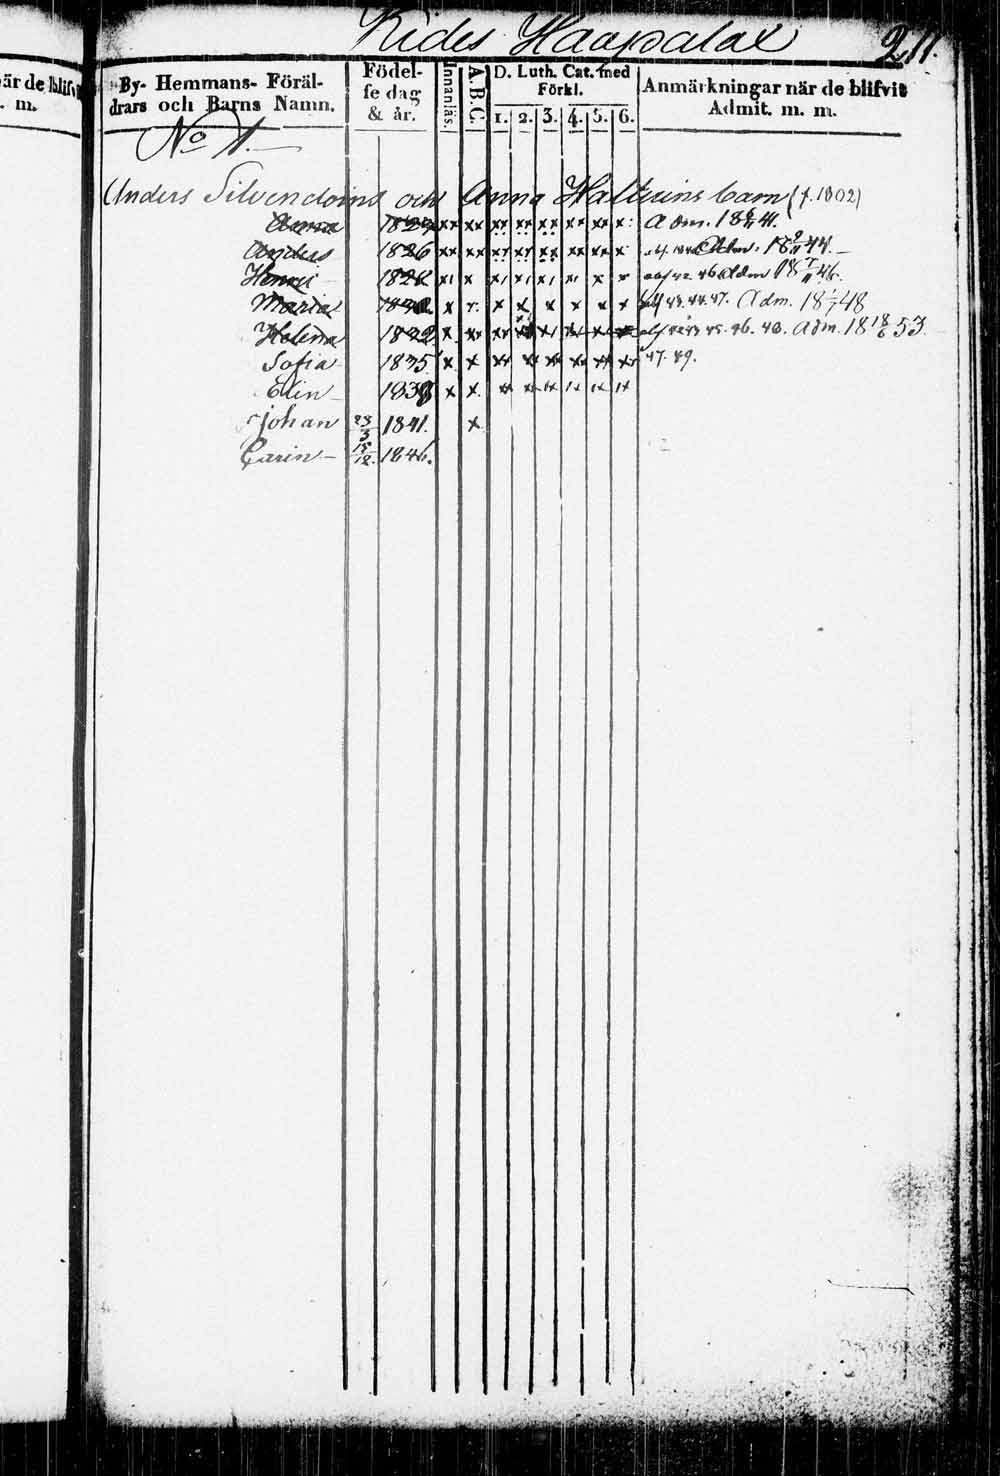 Kides Haapalax 211.
är de blifvit
. m.
By- Hemmans- Föräl-
drars och Barns Namn.
Födel-
se dag
& år.
Innanläs.
A.B.C.
D. Luth. Cat. med
Förkl.
1. 2. 3. 4. 5. 6.
Anmärkningar när de blifvit
Admit. m. m.
No 1.
Anders Silvendoins och Anna Halttuins barn (f. 1802)
Anna xx xx xx xx xx xx xx x Adm. 18 41.
Anders 1826 xx xx xx xx xx xx xx x Adm. 18 44.
Henric 1828 x x x x x x x x 42 46 Adm 18 46.
Maria x x x x x x x x 43. 44. 47. Adm. 18 48
Helena 1832 x xx 45. 46. 48. Adm. 18 18/6 53
Sofia 1835 x x xx xx xx xx xx xx 47. 49.
Elin 1838 x x xx xx xx xx xx xx
Johan 23/3 1841. x
Carin 15/12. 1846.